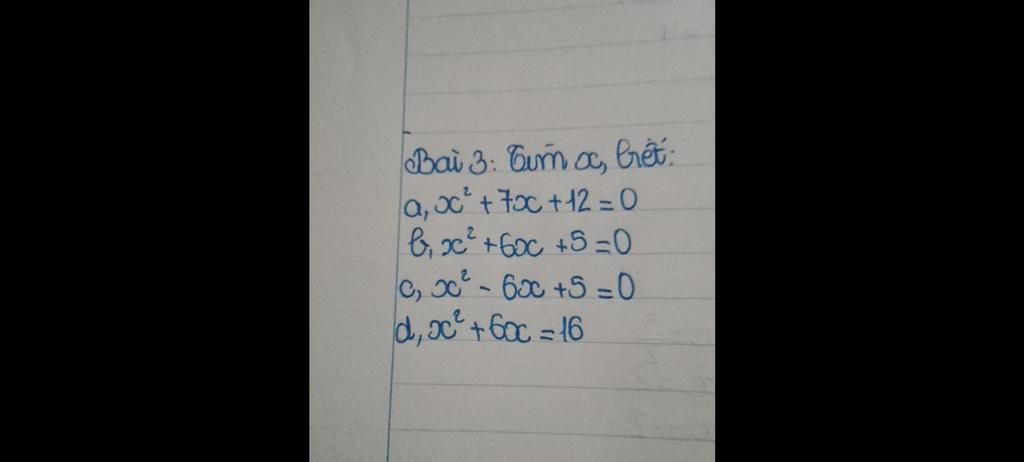 Bài 3: Tìm x, biết:
a, x² + 7x + 12 = 0
b, x² + 6x + 5 = 0
c, x² - 6x + 5 = 0
d, x² + 6x = 16